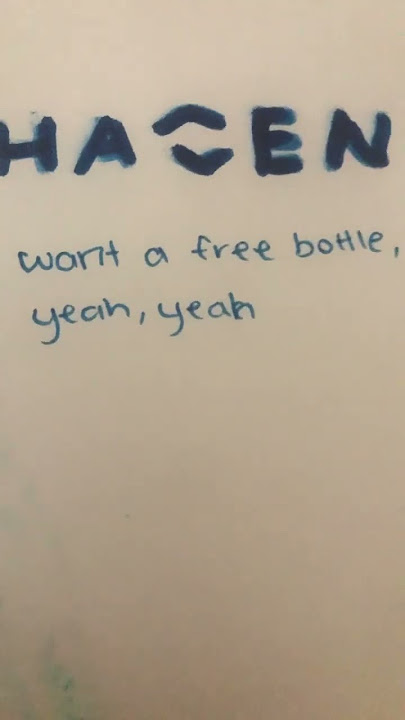 HAVEN
want a free bottle,
yeah, yeah